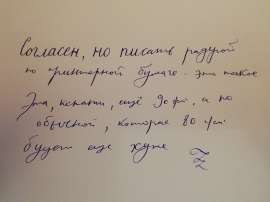 Согласен, но писать радугой
по принтерной бумаге - это такое
Эта, кстати, ещё 90 гр, а по
обычной, которая 80 гр
будет ещё хуже